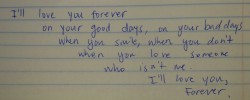 I'll love you forever
on your good days, on your bad days
when you smile, when you don't
when you love someone
who isn't me.
I'll love you,
forever.